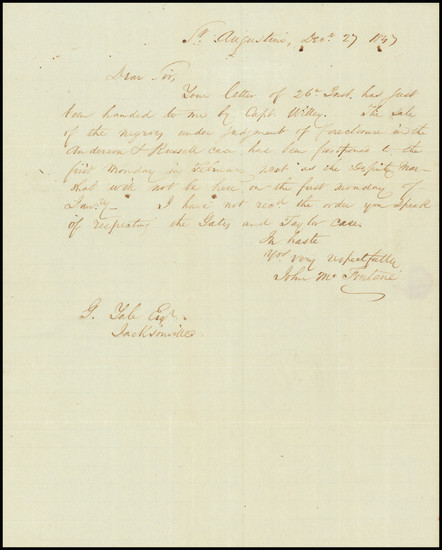 St. Augustine, Decr. 27 1847
Dear Sir,
Your letter of 26th Inst. has just
been handed to me by Capt. Willey. The sale
of the negroes under judgment of foreclosure in the
Anderson & Russell case has been postponed to the
first Monday in February next as the Deputy Mar-
shal will not be here on the first monday of
Jany. I have not recd. the order you speak
of respecting the Gates and Taylor case.
In haste
Your very respectfully
John M.
G. Yale Esqr.
Jacksonville